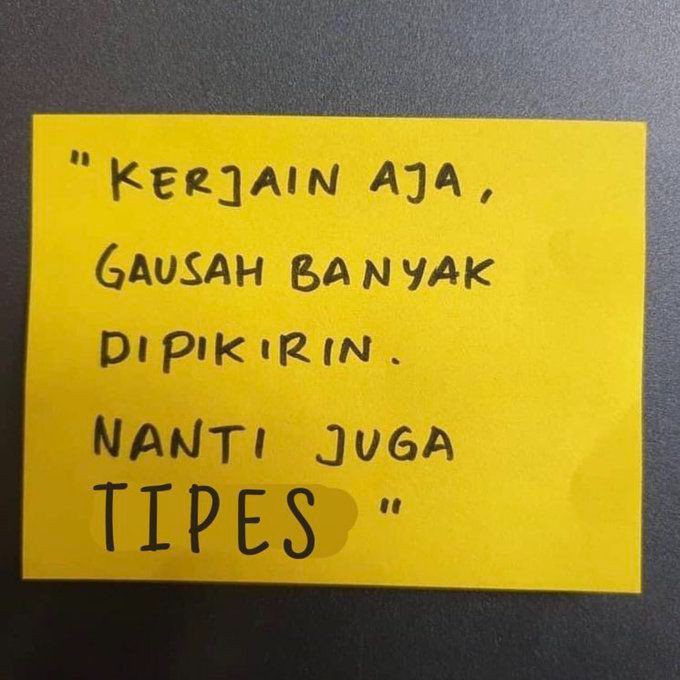 " KERJAIN AJA,
GAUSAH BANYAK
DIPIKIRIN.
NANTI JUGA
TIPES "